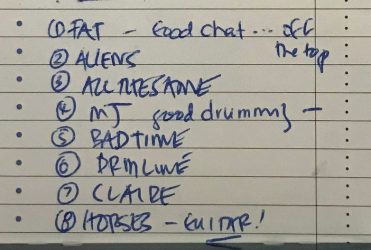 ① FAT – Good chat ... off the top
② ALIENS
③ ALL THE SAME
④ MJ good drumming –
⑤ BAD TIME
⑥ DRMLINE
⑦ CLAIRE
⑧ HORSES – GUITAR!